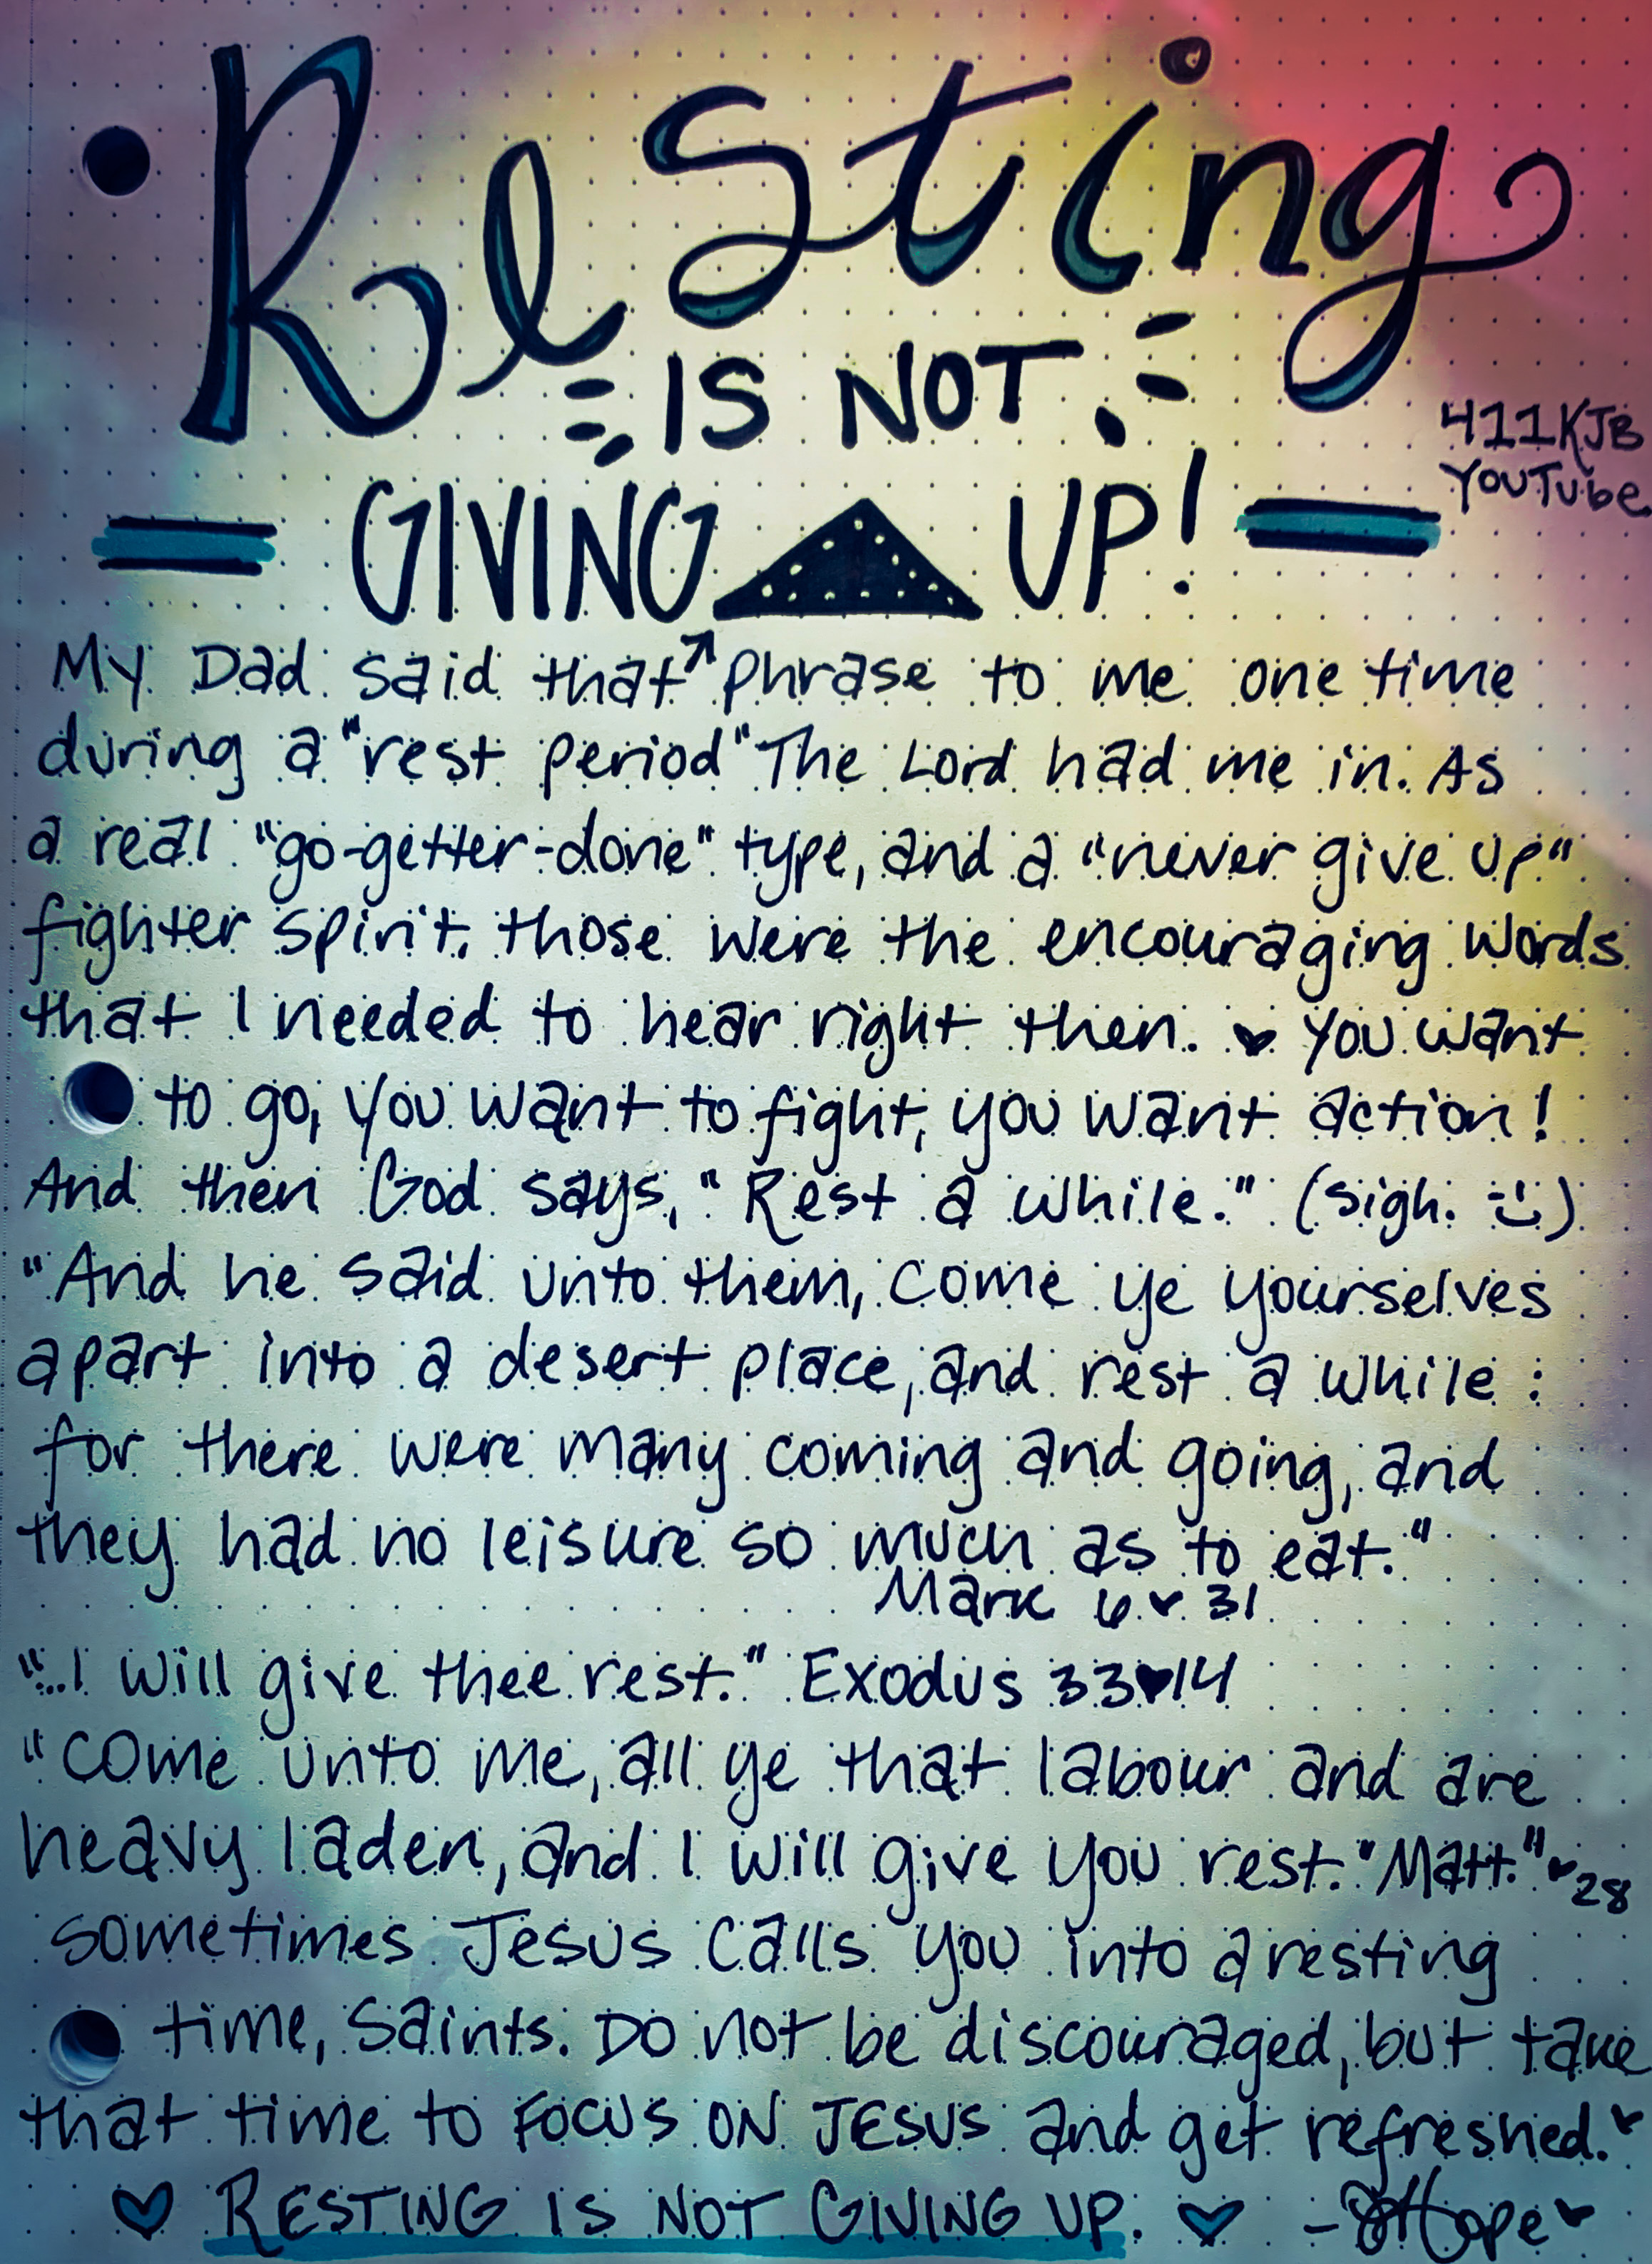 Resting
IS NOT
411KJB
YouTube
GIVING UP!
My Dad said that↗phrase to me one time
during a "rest period" The Lord had me in. As
a real "go-getter-done" type, and a "never give up"
fighter spirit, those were the encouraging words
that I needed to hear right then. ♥ You want
to go, you want to fight, you want action!
And then God says, "Rest a while." (sigh. :))
"And he said unto them, Come ye yourselves
apart into a desert place, and rest a while:
for there were many coming and going, and
they had no leisure so much as to eat."
Mark 6♥31
"...I will give thee rest." Exodus 33♥14
"Come unto me, all ye that labour and are
heavy laden, and I will give you rest." Matt. 11♥28
sometimes Jesus calls you into a resting
time, Saints. Do not be discouraged, but take
that time to FOCUS ON JESUS and get refreshed.♥
♥ RESTING IS NOT GIVING UP. ♥ -JHope♥